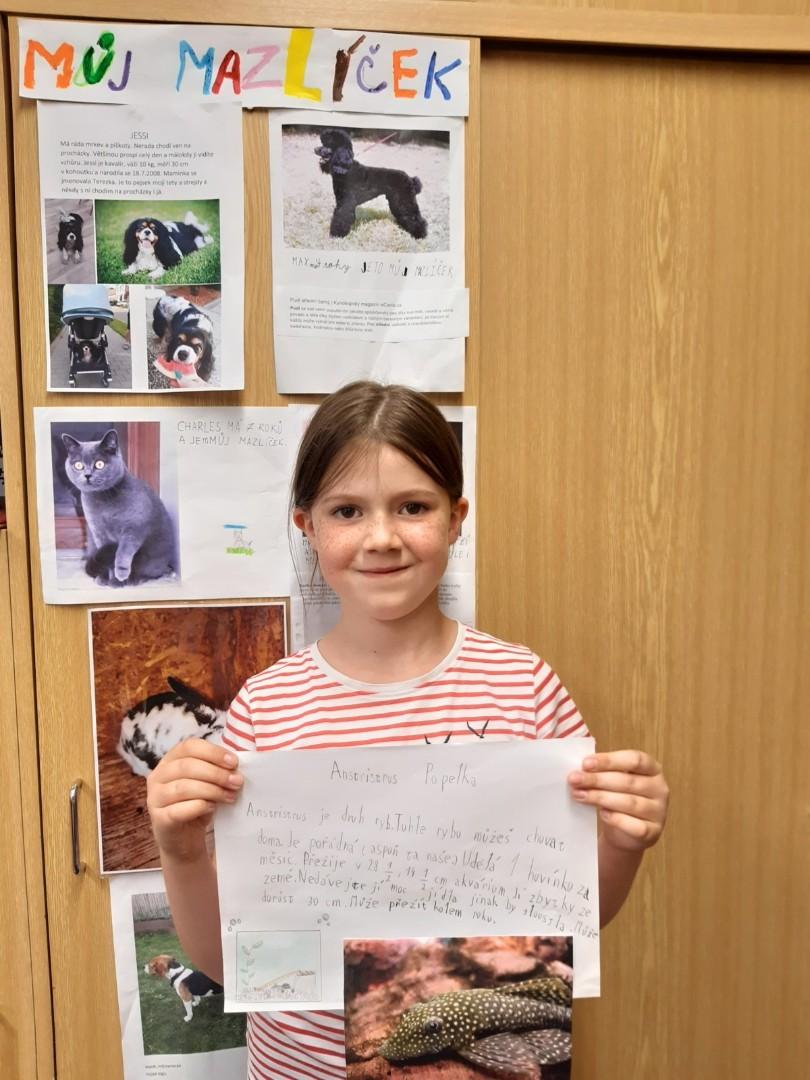 MŮJ MAZLÍČEK
JESSI
Má ráda mrkev a piškoty. Nerada chodí ven na
procházky. Většinou prospí celý den a málokdy ji vidíte
vzhůru. Jessi je kavalír, váží 10 kg, měří 30 cm
v kohoutku a narodila se 18.7.2008. Maminka se
jmenovala Terezka. Je to pejsek mojí tety a strejdy a
někdy s ní chodím na procházky i já.
MAX JE TO MŮJ MAZLÍČEK
Pudl střední černý | Kynologický magazín
CHARLES MÁ 7 ROKŮ
A JE MŮJ MAZLÍČEK.
Ansristrus Popelka
Ansristrus je druh ryb. Tuhle rybu můžeš chovat
doma. Je pořádná (aspoň ta naše) Udělá 1 hovínko za
měsíc. Přežije v 28 1/2, 14 1/2 cm akvárium. Jí zbytky ze
země. Nedávejte jí moc jídla jinak by stloustla. Může
dorůst 30 cm. Může přežít kolem roku.